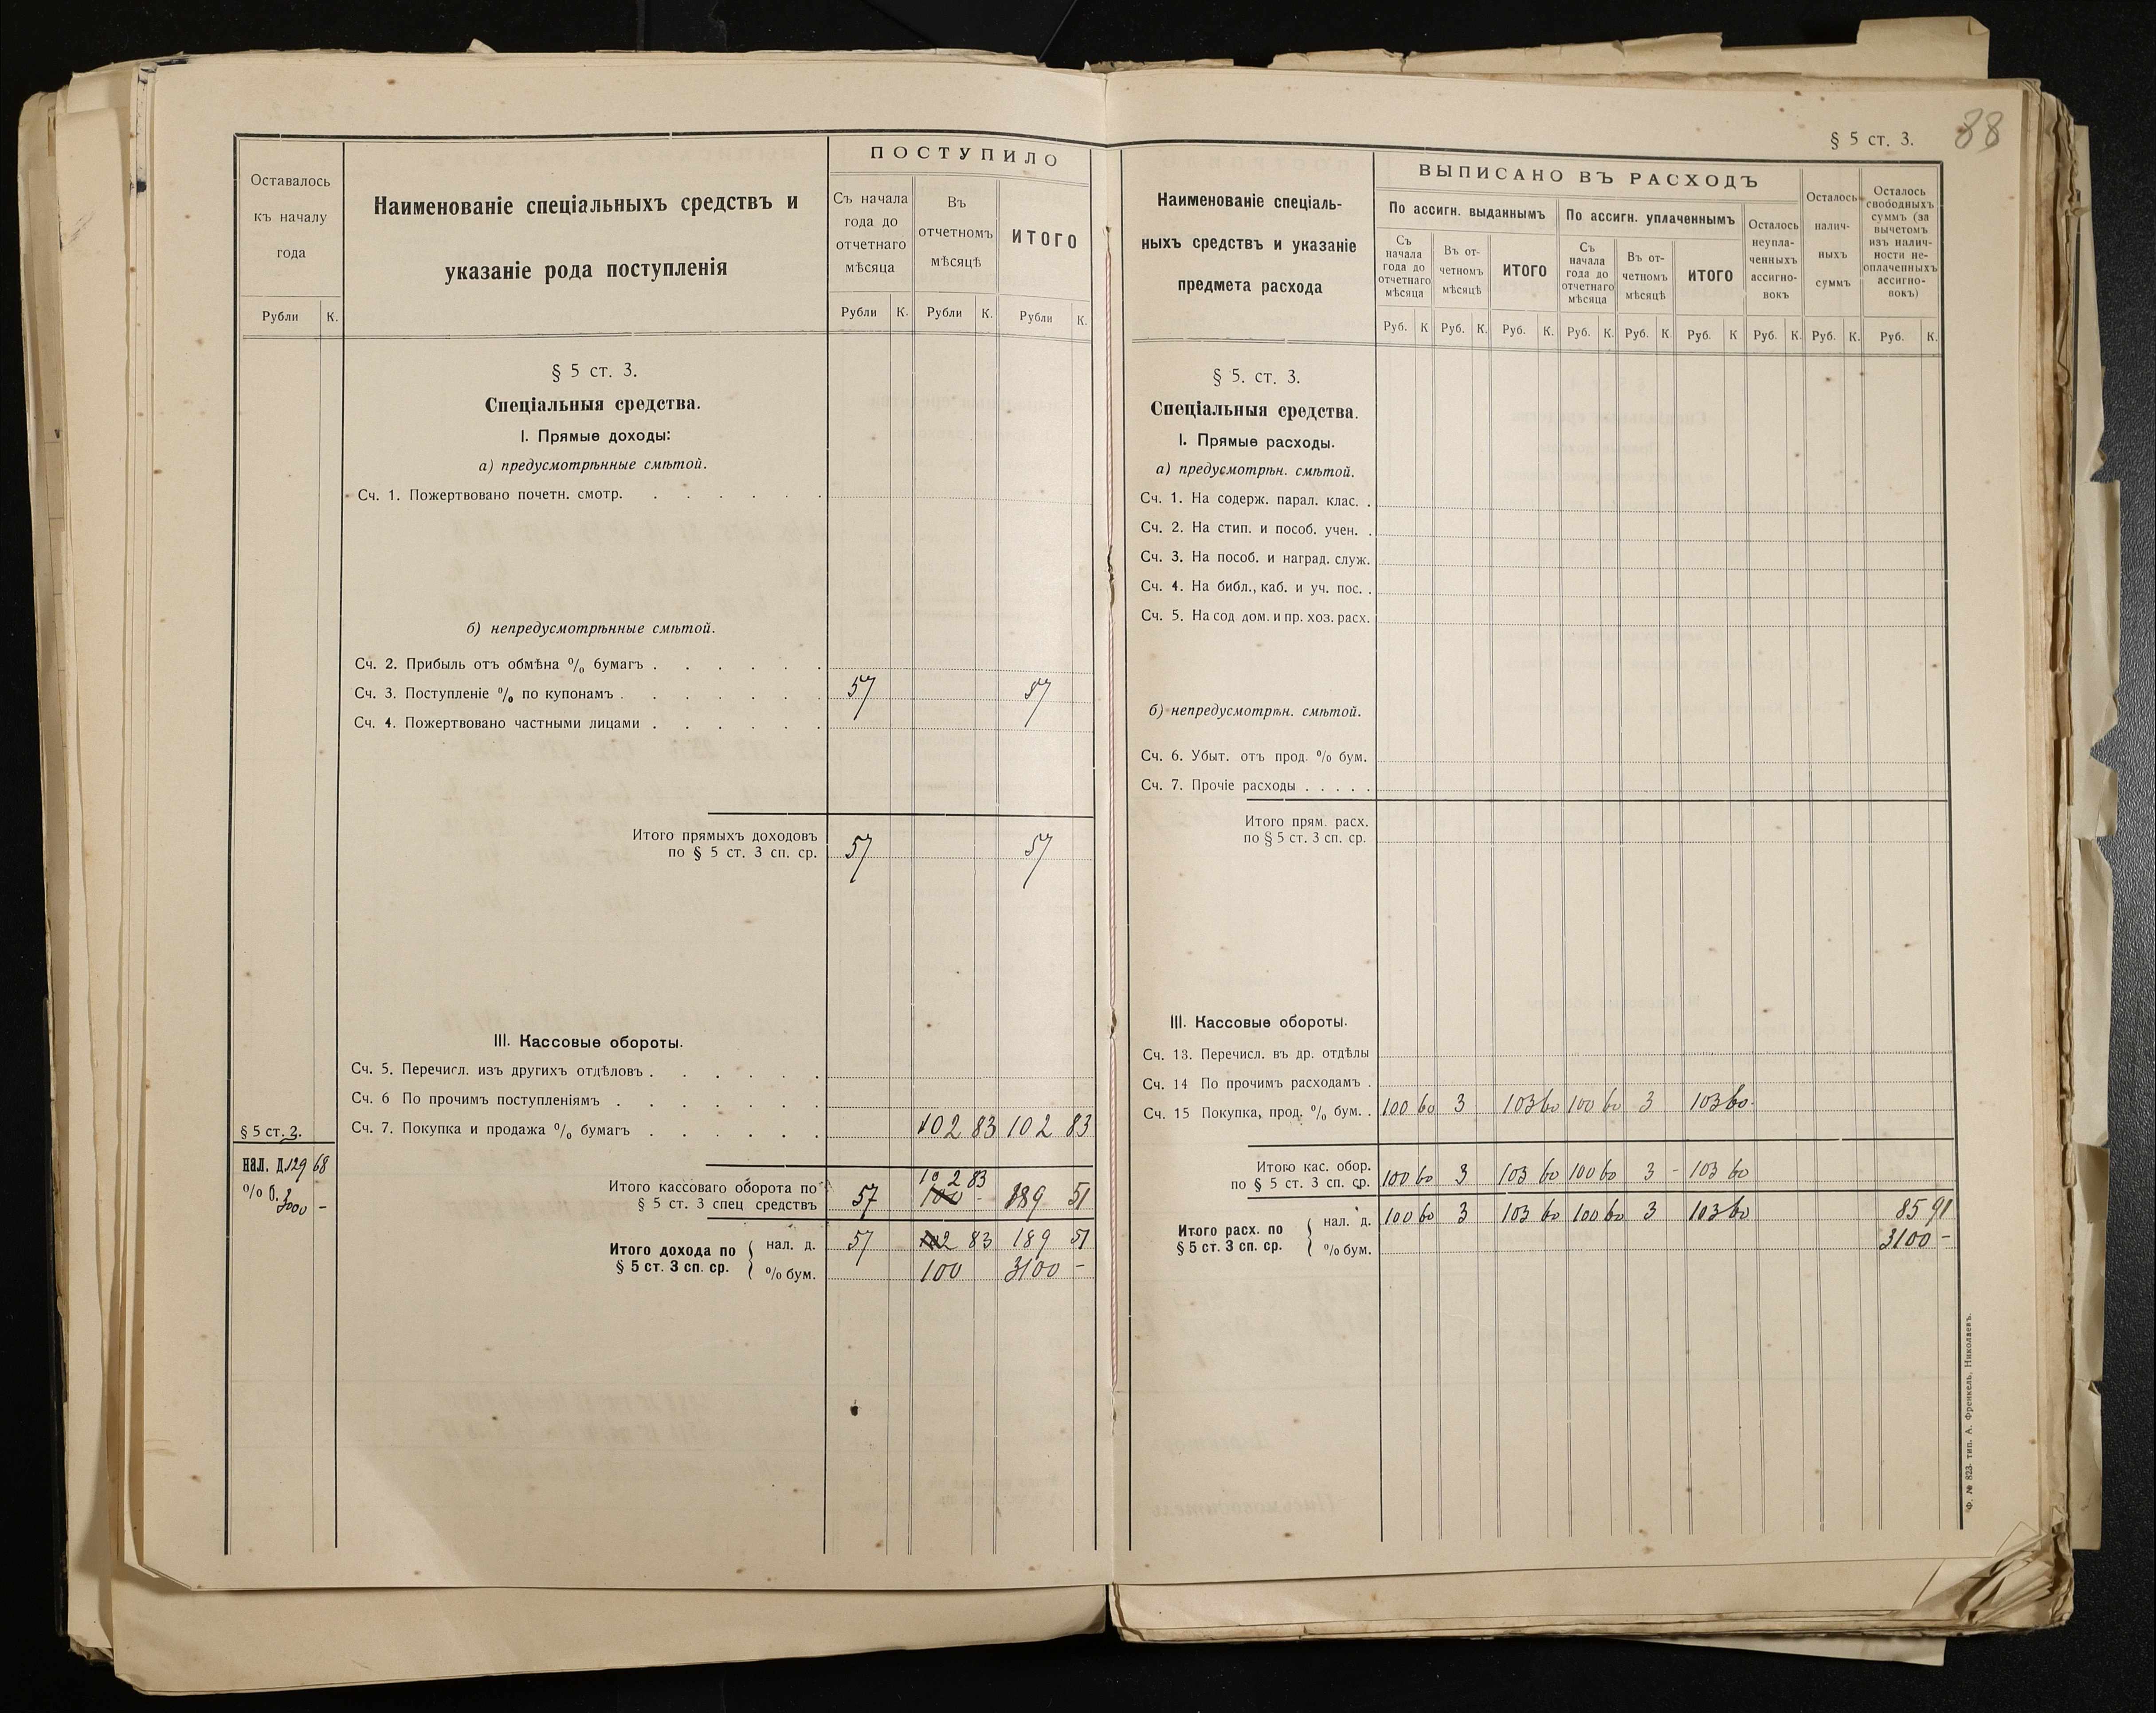 88
§ 5 ст. 3.
Оставалось
къ началу
года
Рубли К.
Наименованіе спеціальныхъ средствъ и
указаніе рода поступленія
ПОСТУПИЛО
Съ начала
года до
отчетнаго
мѣсяца
Въ
отчетномъ
мѣсяцѣ
ИТОГО
Рубли К. Рубли К. Рубли К.
§ 5 ст. 3.
Спеціальныя средства.
I. Прямые доходы:
а) предусмотрѣнные смѣтой.
Сч. 1. Пожертвовано почетн. смотр. . . . . . .
б) непредусмотрѣнные смѣтой.
Сч. 2. Прибыль отъ обмѣна % бумагъ . . . . . .
Сч. 3. Поступленіе % по купонамъ . . . . . . 57 57
Сч. 4. Пожертвовано частными лицами . . . . . .
Итого прямыхъ доходовъ
по § 5 ст. 3 сп. ср. 57 57
III. Кассовые обороты.
Сч. 5. Перечисл. изъ другихъ отдѣловъ . . . . . .
Сч. 6 По прочимъ поступленіямъ . . . . . . .
Сч. 7. Покупка и продажа % бумагъ . . . . . . 102 83 102 83
§ 5 ст. 3.
нал. д. 129 68
% б. 3000 -
102 83
Итого кассоваго оборота по
§ 5 ст. 3 спец средствъ 57 100 - 189 51
Итого дохода по
§ 5 ст. 3 сп. ср.
нал. д. 57 102 83 189 51
% бум. 100 3100 -
Наименованіе спеціаль-
ныхъ средствъ и указаніе
предмета расхода
ВЫПИСАНО ВЪ РАСХОДЪ
По ассигн. выданнымъ По ассигн. уплаченнымъ
Съ
начала
года до
отчетнаго
мѣсяца
Въ от-
четномъ
мѣсяцѣ
ИТОГО
Съ
начала
года до
отчетнаго
мѣсяца
Въ от-
четномъ
мѣсяцѣ
ИТОГО
Осталось
неупла-
ченныхъ
ассигно-
вокъ
Осталось
налич-
ныхъ
суммъ
Осталось
свободныхъ
суммъ (за
вычетомъ
изъ налич-
ности не-
оплаченныхъ
ассигно-
вокъ)
Руб. К Руб. К. Руб. К. Руб. К. Руб. К Руб. К Руб. К. Руб. К. Руб. К.
§ 5. ст. 3.
Спеціальныя средства.
I. Прямые расходы.
а) предусмотрѣн. смѣтой.
Сч. 1. На содерж. парал. клас. .
Сч. 2. На стип. и пособ. учен. .
Сч. 3. На пособ. и наград. служ.
Сч. 4. На библ., каб. и уч. пос. .
Сч. 5. На сод дом. и пр. хоз. расх.
б) непредусмотрѣн. смѣтой.
Сч. 6. Убыт. отъ прод. % бум.
Сч. 7. Прочіе расходы . . . . .
Итого прям. расх.
по § 5 ст. 3 сп. ср.
III. Кассовые обороты.
Сч. 13. Перечисл. въ др. отдѣлы
Сч. 14 По прочимъ расходамъ .
Сч. 15 Покупка, прод. % бум. . 100 60 3 103 60 100 60 3 103 60
Итого кас. обор.
по § 5 ст. 3 сп. ср. 100 60 3 103 60 100 60 3 - 103 60
Итого расх. по
§ 5 ст. 3 сп. ср.
нал. д. 100 60 3 103 60 100 60 3 103 60 85 91
% бум. 3100 -
Ф. № 823. тип. А. Френкель, Николаевъ.